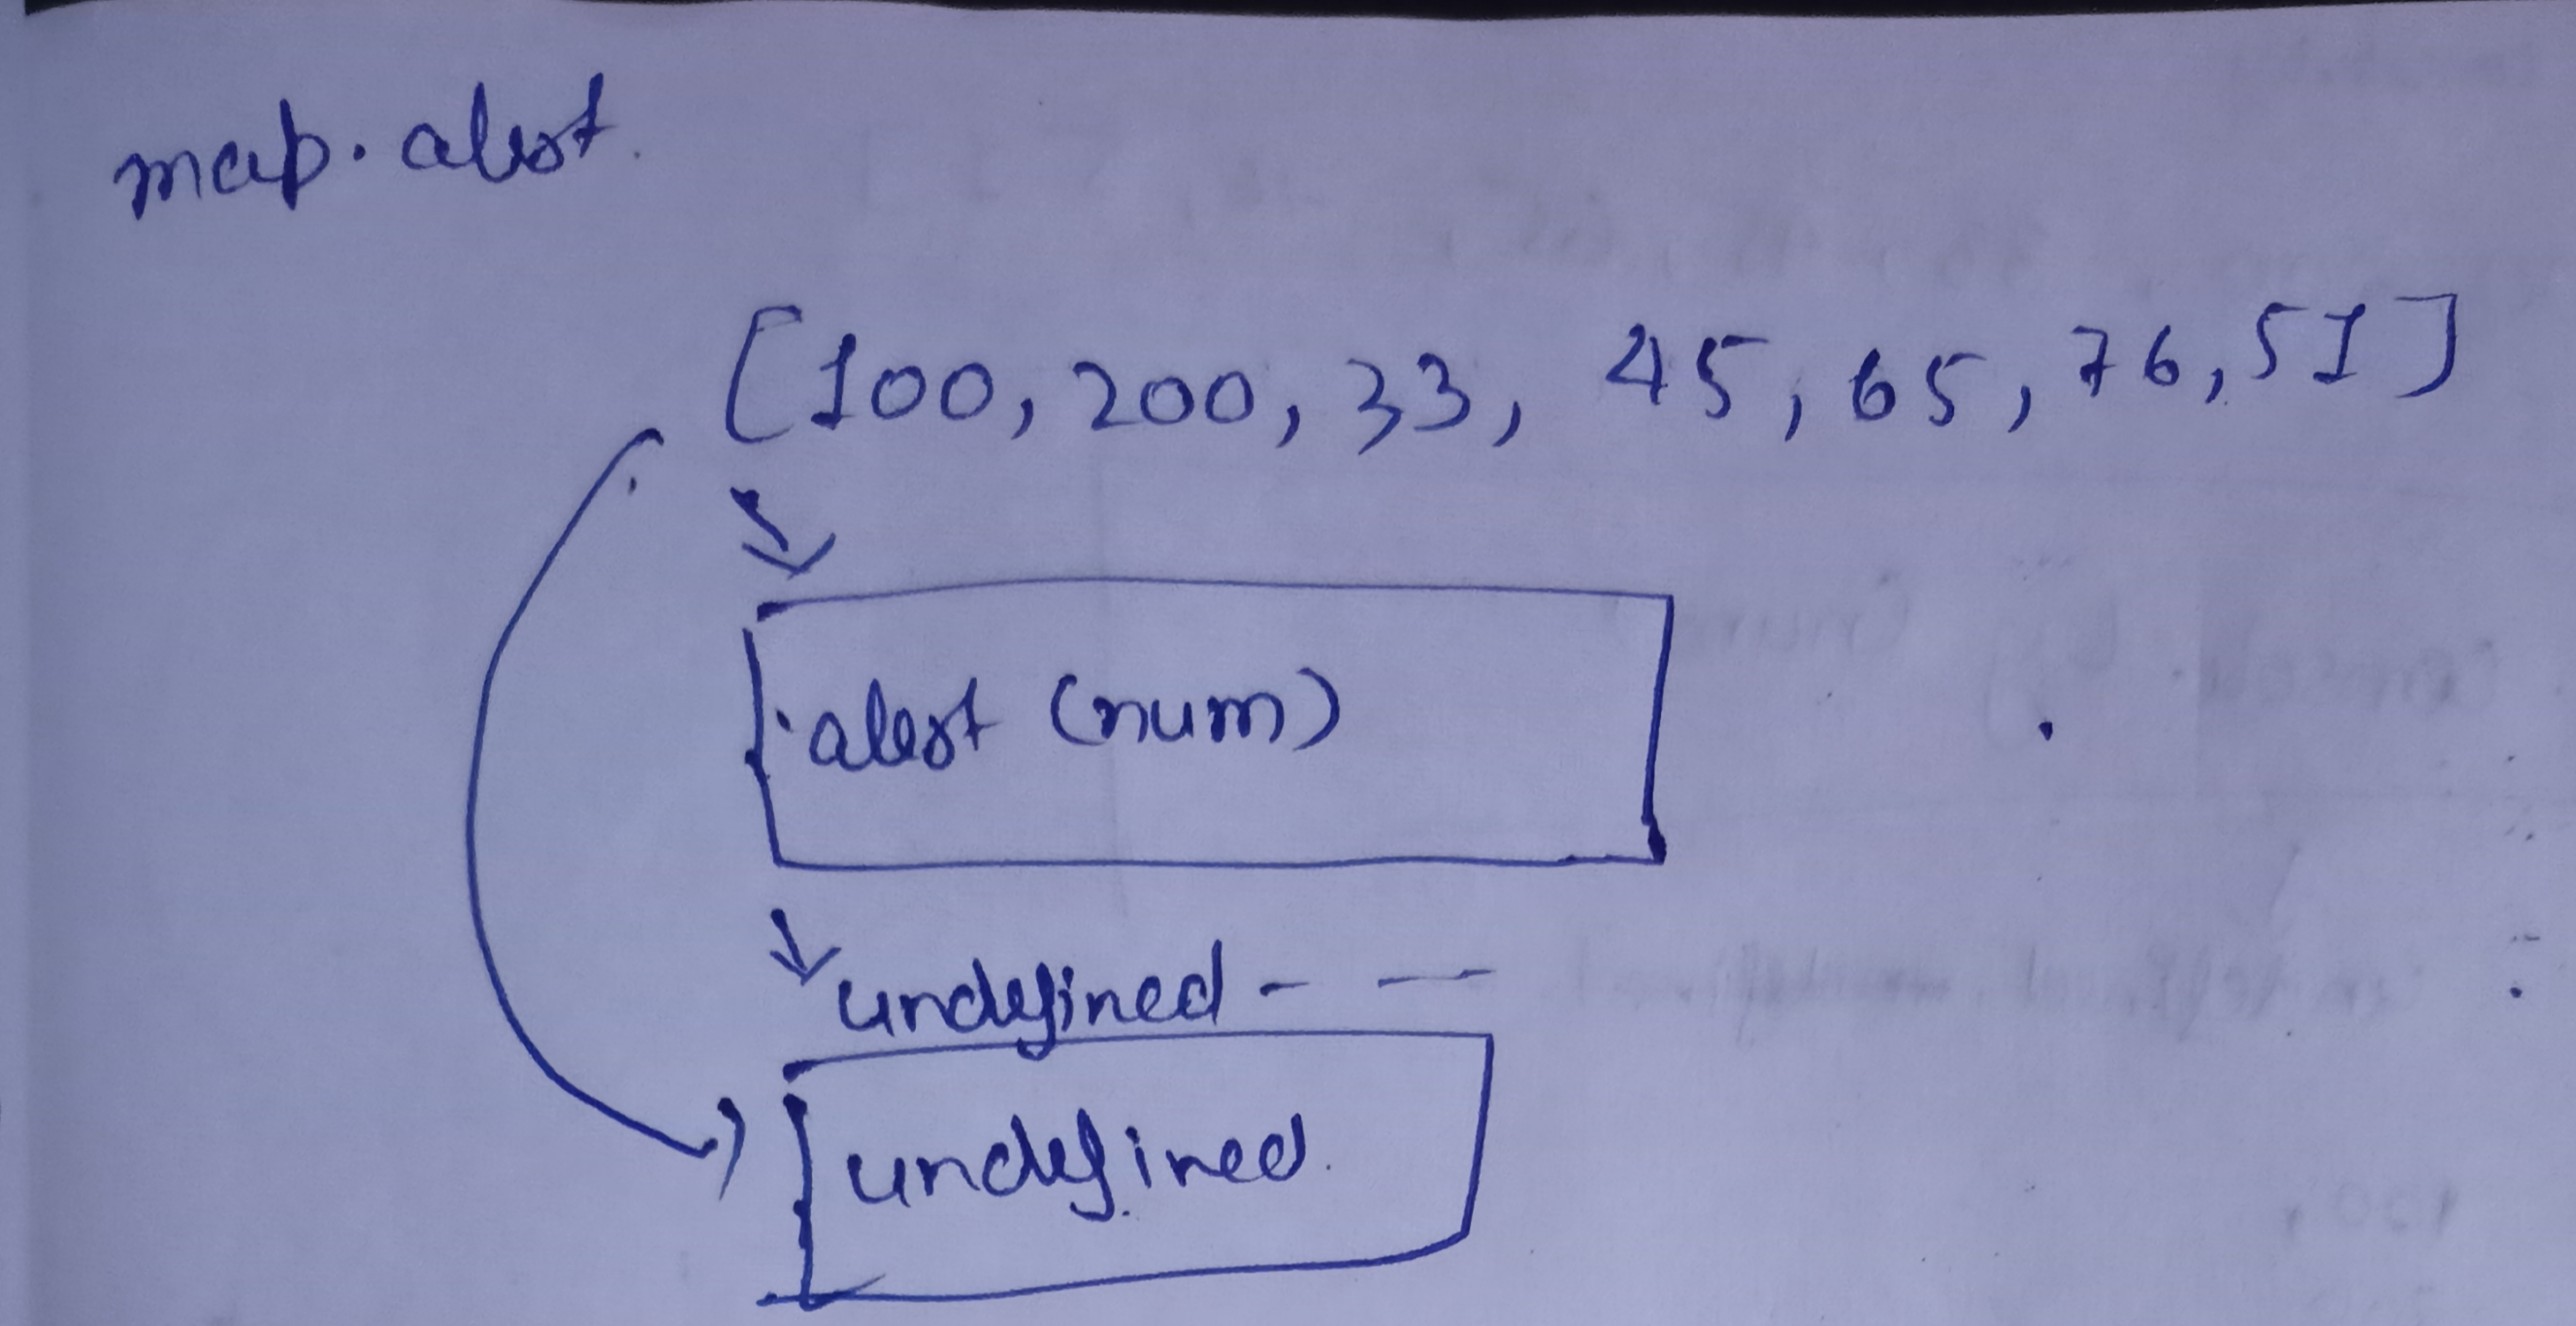 map. alert.
[100, 200, 33, 45, 65, 76, 51]
alert (num)
undefined - —
undefined.